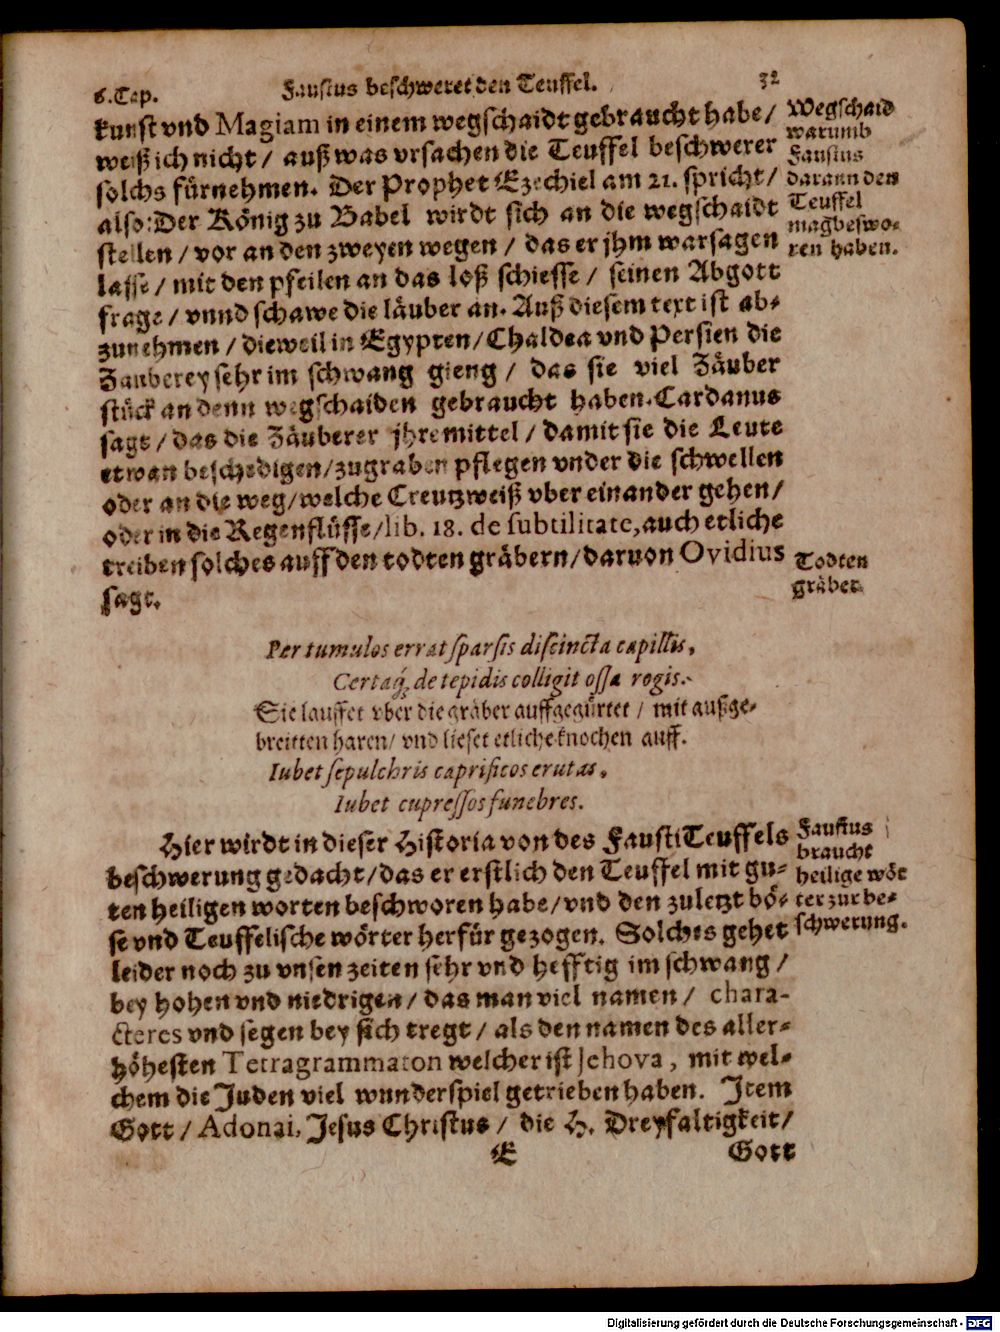 6. Cap. Faustus beschweret den Teuffel. 32
kunst vnd Magiam in einem wegschaidt gebraucht habe/
weiß ich nicht / auß was vrsachen die Teuffel beschwerer
solchs fürnehmen. Der Prophet Ezechiel am 21. spricht/
also: Der König zu Babel wirdt sich an die wegschaidt
stellen / vor an den zweyen wegen / das er jhm warsagen
lasse / mit den pfeilen an das loß schiesse / seinen Abgott
frage / vnnd schawe die läuber an. Auß diesem text ist ab-
zunehmen / dieweil in Egypten/ Chaldea vnd Persien die
Zauberey sehr im schwang gieng / das sie viel Zäuber
stück an denn wegschaiden gebraucht haben. Cardanus
sagt / das die Zäuberer jhre mittel / damit sie die Leute
etwan beschedigen/ zugraben pflegen vnder die schwellen
oder an die weg/ welche Creutzweiß vber einander gehen/
oder in die Regenflüsse/ lib. 18. de subtilitate, auch etliche
treiben solches auff den todten gräbern/ daruon Ovidius
sagt.
Wegschaid
warumb
Faustus
darann den
Teuffel
mag beswo-
ren haben.
Todten
gräber.
Per tumulos errat sparsis discincta capillis,
Certaq́; de tepidis colligit ossa rogis.
Sie lauffet vber die gräber auffgegürtet / mit außge-
breitten haren/ vnd lieset etliche knochen auff.
Iubet sepulchris caprificos erutas,
Iubet cupressos funebres.
Hier wirdt in dieser Historia von des Fausti Teuffels
beschwerung gedacht/ das er erstlich den Teuffel mit gu-
ten heiligen worten beschworen habe/ vnd den zuletzt bö-
se vnd Teuffelische wörter herfür gezogen. Solches gehet
leider noch zu vnsen zeiten sehr vnd hefftig im schwang /
bey hohen vnd niedrigen / das man viel namen / chara-
cteres vnd segen bey sich tregt / als den namen des aller-
höhesten Tetragrammaton welcher ist Jehova, mit wel-
chem die Juden viel wunderspiel getrieben haben. Jtem
Gott / Adonai, Jesus Christus / die H. Dreyfaltigkeit/
Faustus
braucht
heilige wör
ter zur be-
schwerung.
E Gott
Digitalisierung gefördert durch die Deutsche Forschungsgemeinschaft - DFG